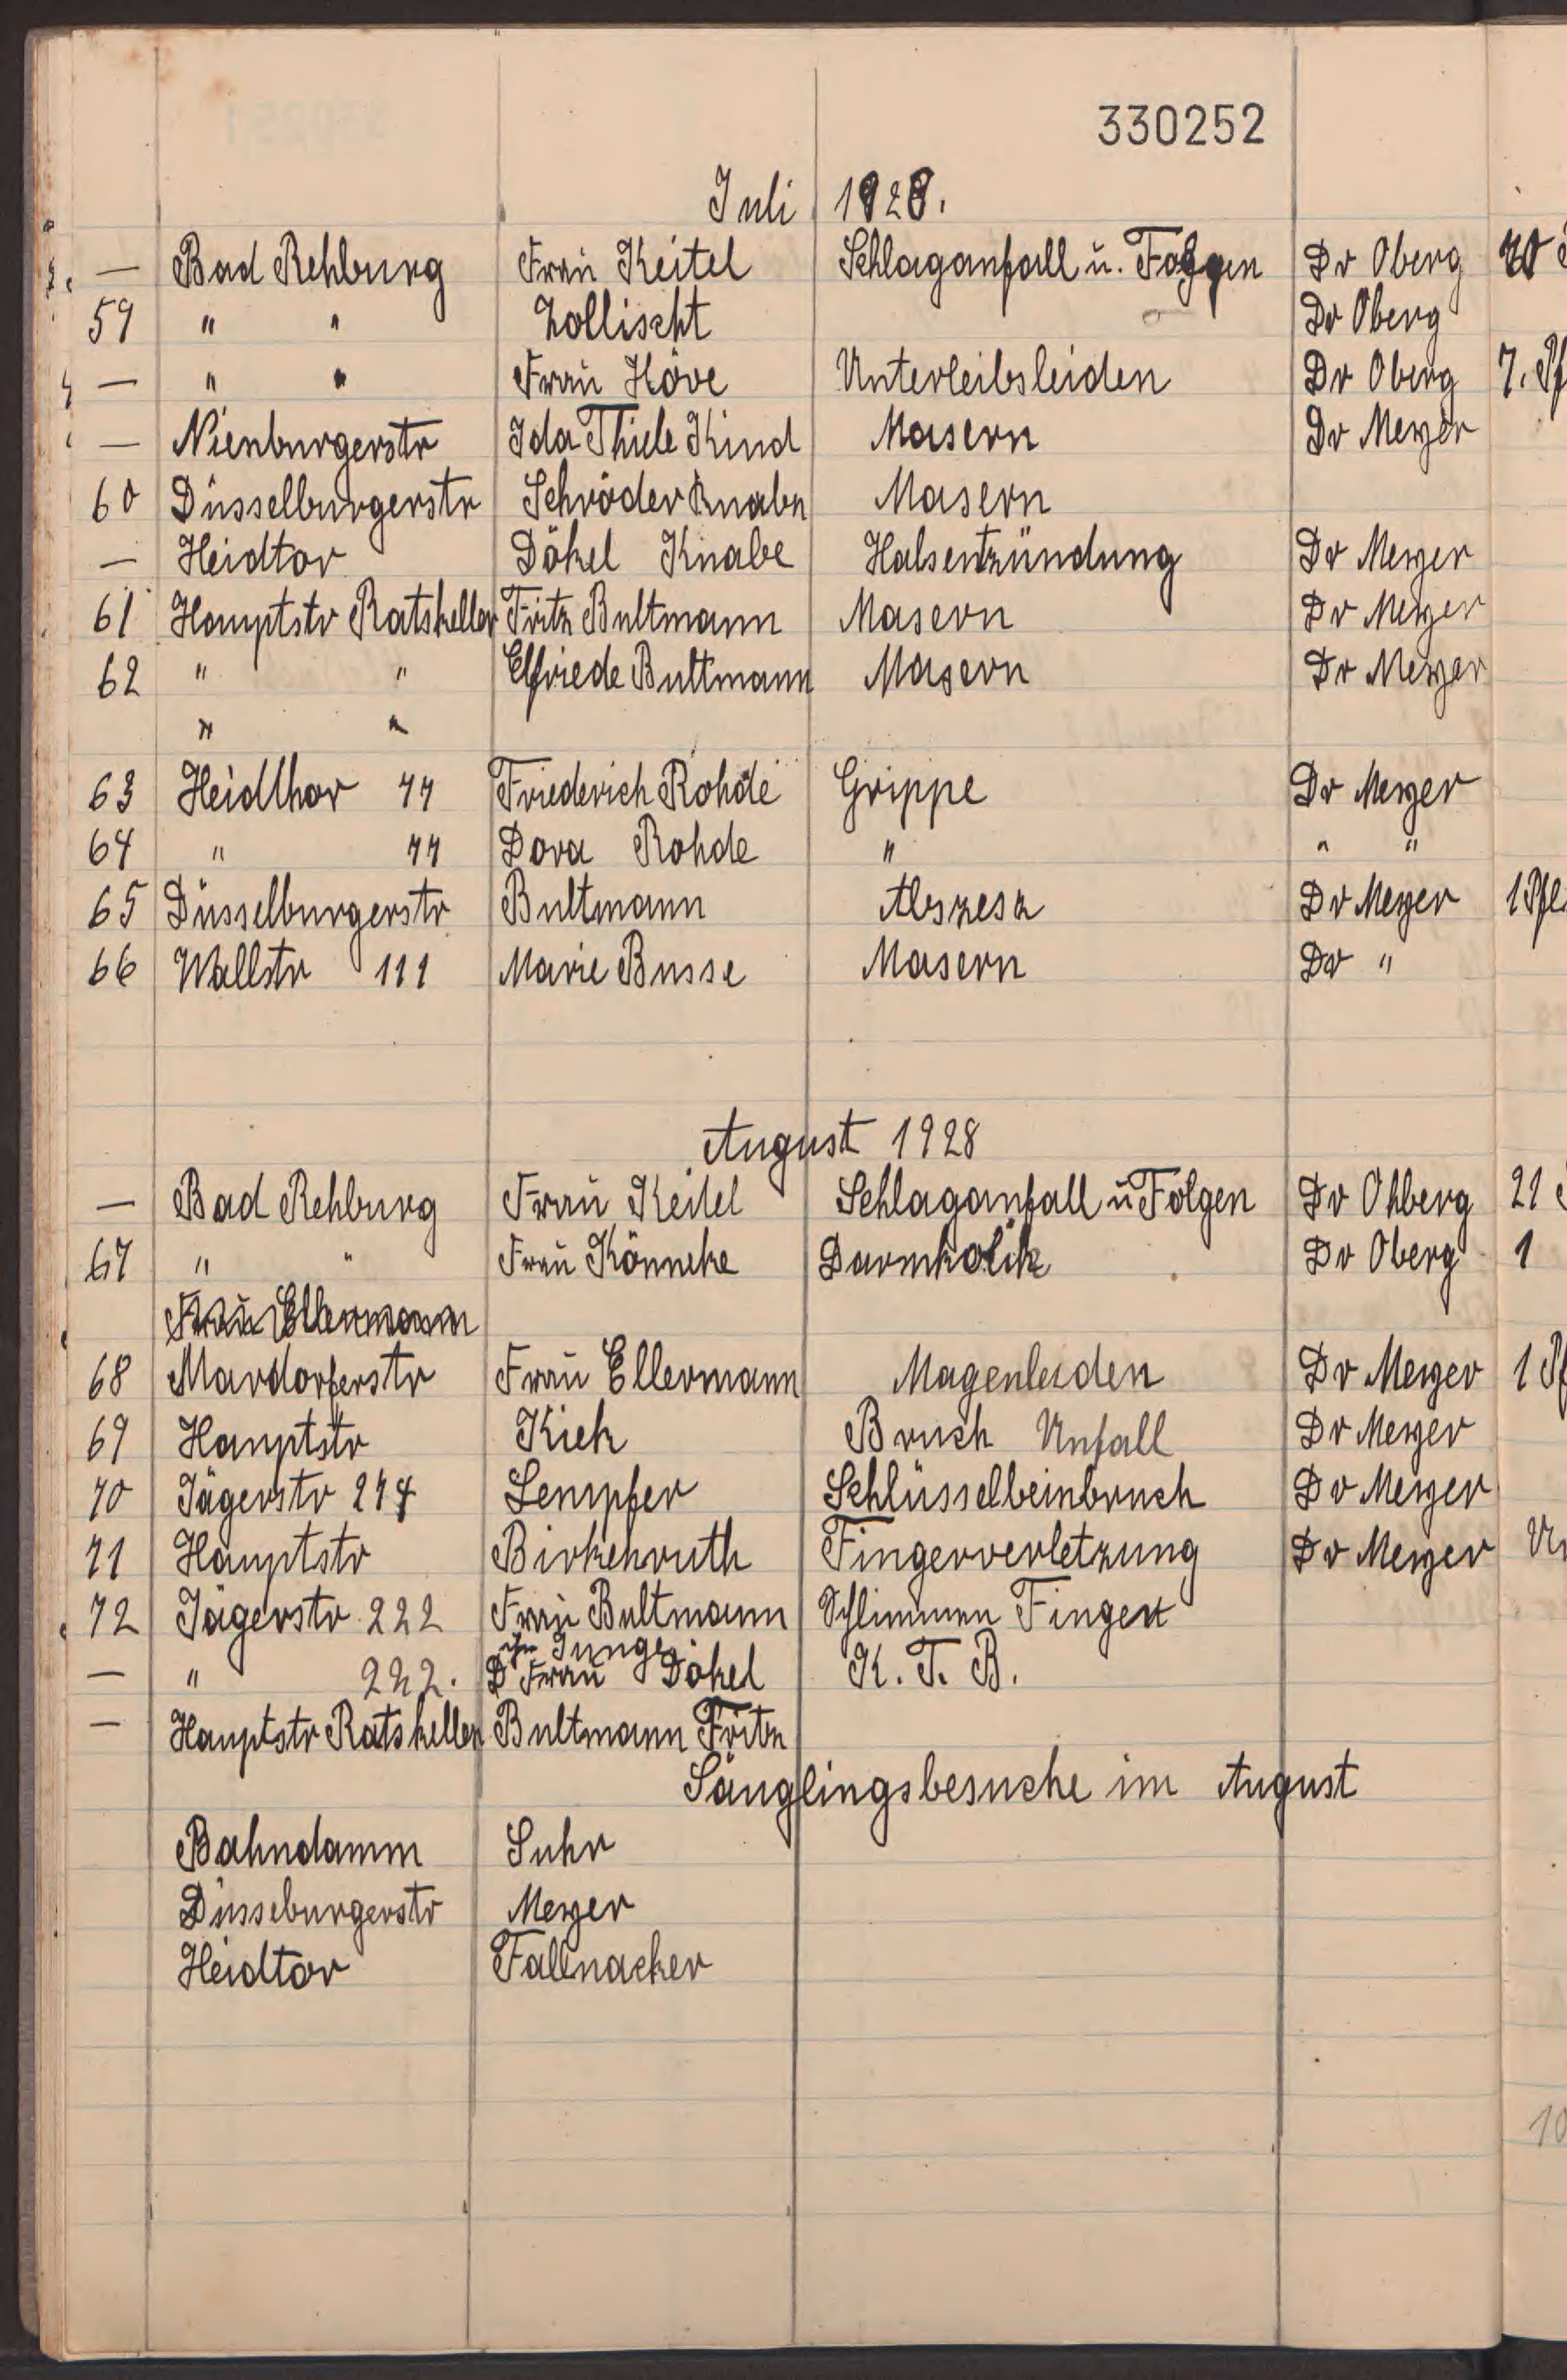 330252
Juli 1928.
— Bad Rehburg Frau Keitel Schlaganfall u. Folgen Dr Oberg 20
59 " " Zollischt Dr Oberg
— " " Frau Höve Unterleibsleiden Dr Oberg 7. Pf
— Nienburgerstr Ida Thiele Kind Masern Dr Meyer
60 Düsselburgerstr Schröder Knabe Masern
— Heidtor Dökel Knabe Halsentzündung Dr Meyer
61 Hauptstr Ratskeller Fritz Bultmann Masern Dr Meyer
62 " " Elfriede Bultmann Masern Dr Meyer
" "
63 Heidthor 77 Friederich Rohde Grippe Dr Meyer
64 " 77 Dora Rohde " " "
65 Düsselburgerstr Bultmann Abszesz Dr Meyer 1 Pfl.
66 Wallstr 111 Marie Busse Masern Dr "
August 1928
— Bad Rehburg Frau Keitel Schlaganfall u Folgen Dr Ohberg 21
67 " " Frau Könneke Darmkolik Dr Oberg 1
Frau Ellermann
68 Mardorferstr Frau Ellermann Magenleiden Dr Meyer 1 Pf
69 Hauptstr Kich Bruch Unfall Dr Meyer
70 Jägerstr 274 Lempfer Schlüsselbeinbruch Dr Meyer
71 Hauptstr Birkenruth Fingerverletzung Dr Meyer
72 Jägerstr 222 Frau Bultmann Schlimmen Finger
ihr Junge
— " 222. Frau Dökel K. T. B.
— Hauptstr Ratskeller Bultmann Fritz
Säuglingsbesuche im August
Bahndamm Suhr
Düsseburgerstr Meyer
Heidtor Fallnacker
10